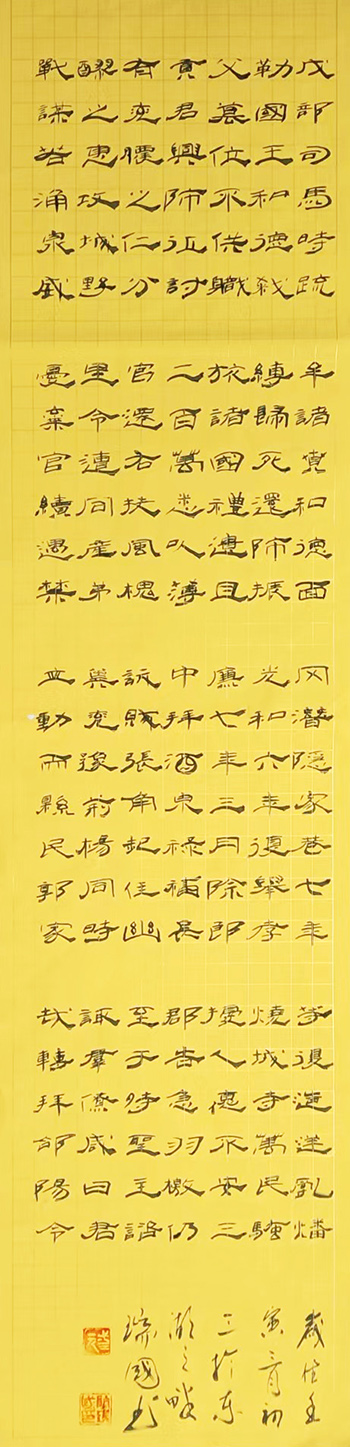 戊部司馬時疏
勒國王和德弒
父篡位不供職
貢君興師征討
有兗膿之仁分
醪之惠攻城野
戰謀若涌泉威
牟諸賁和德面
縛歸死還師振
旅諸國禮遺且
二百萬悉以薄
官遷右扶風槐
里令遭同產弟
憂棄官續遇禁
网潛隱家巷七年
光和六年復舉孝
廉七年三月除郎
中拜酒泉祿福長
訞賊張角起兵幽
冀兗豫荊楊同時
並動而縣民郭家
等復造逆亂燔
燒城寺萬民騷
擾人懷不安三
郡告急羽檄仍
至于時聖主諮
諏群僚咸曰君
哉轉拜郃陽令
歲在壬
寅月初
二於東
湖之畔
國書